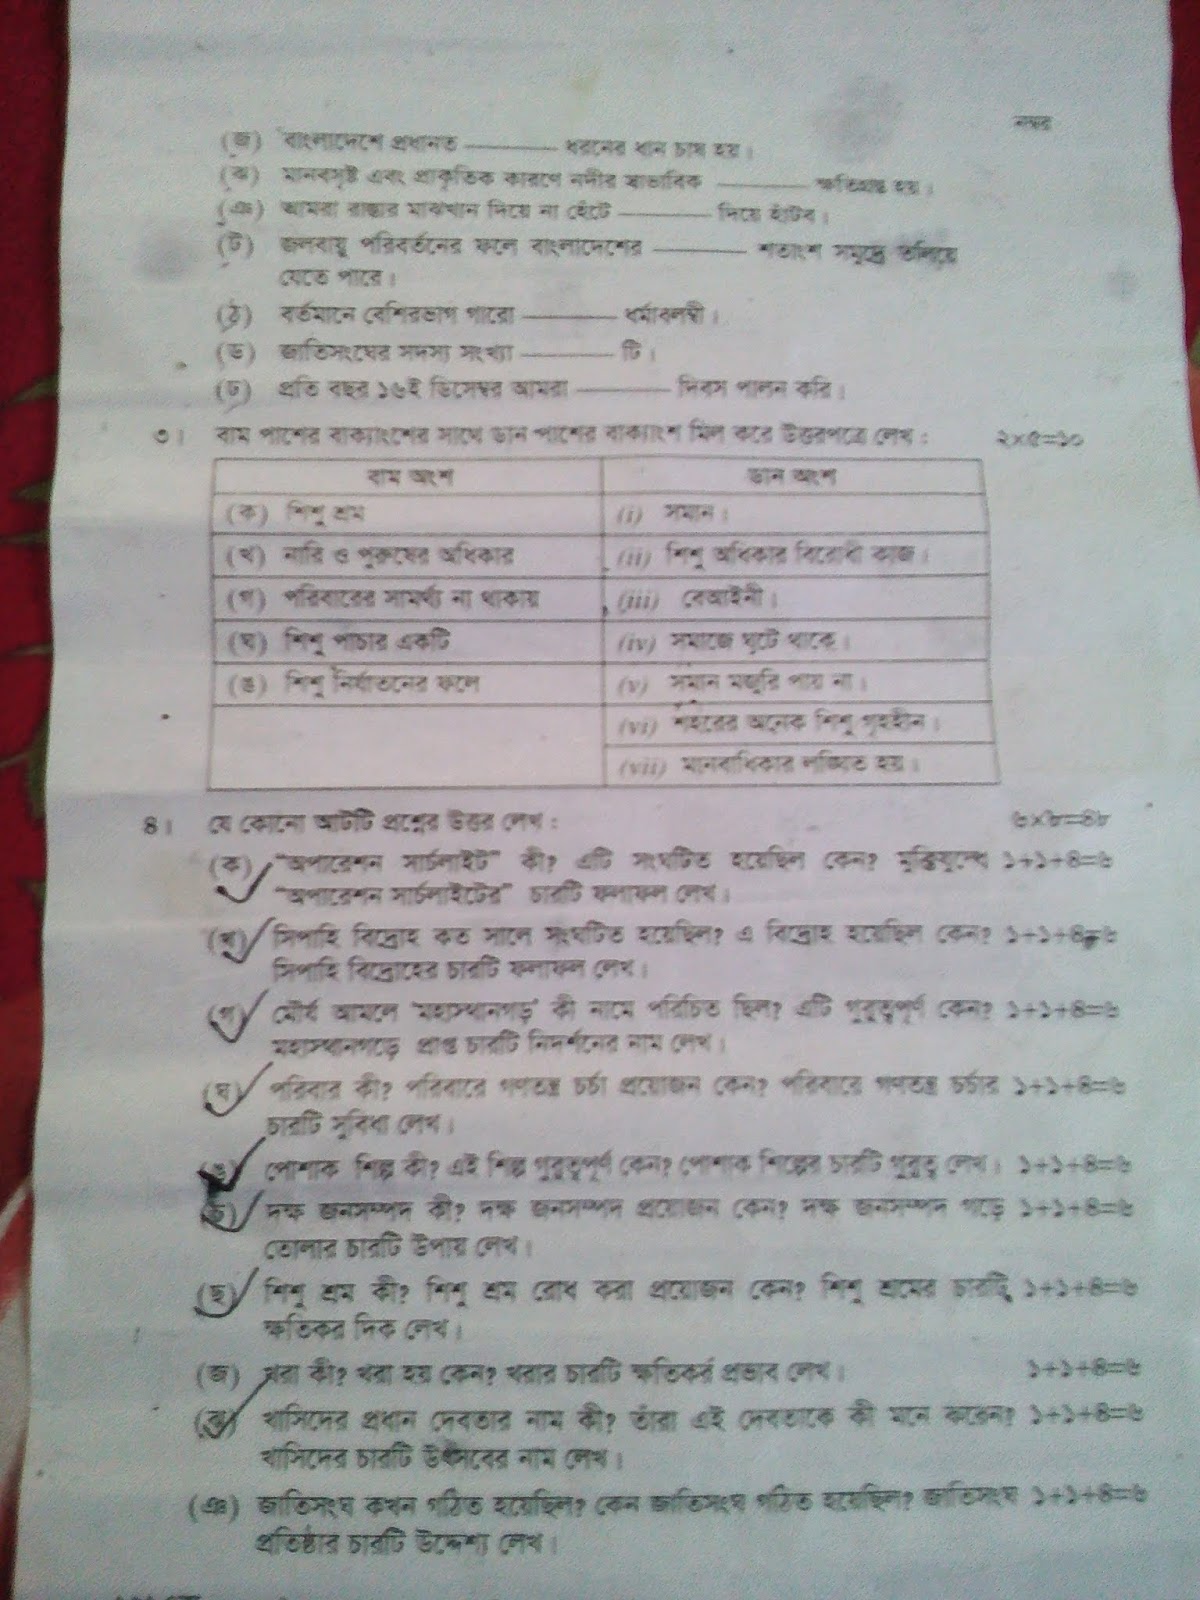 নম্বর
(জ) বাংলাদেশে প্রধানত ———— ধরনের ধান চাষ হয়।
(ঝ) মানবসৃষ্ট এবং প্রাকৃতিক কারণে নদীর স্বাভাবিক ———— ক্ষতিগ্রস্ত হয়।
(ঞ) আমরা রাস্তার মাঝখান দিয়ে না হেঁটে ———— দিয়ে হাঁটব।
(ট) জলবায়ু পরিবর্তনের ফলে বাংলাদেশের ———— শতাংশ সমুদ্রে তলিয়ে
যেতে পারে।
(ঠ) বর্তমানে বেশিরভাগ গারো ———— ধর্মাবলম্বী।
(ড) জাতিসংঘের সদস্য সংখ্যা ———— টি।
(ঢ) প্রতি বছর ১৬ই ডিসেম্বর আমরা ———— দিবস পালন করি।
৩। বাম পাশের বাক্যাংশের সাথে ডান পাশের বাক্যাংশ মিল করে উত্তরপত্রে লেখ : ২×৫=১০
বাম অংশ ডান অংশ
(ক) শিশু শ্রম (i) সমান।
(খ) নারি ও পুরুষের অধিকার (ii) শিশু অধিকার বিরোধী কাজ।
(গ) পরিবারের সামর্থ্য না থাকায় (iii) বেআইনী।
(ঘ) শিশু পাচার একটি (iv) সমাজে ঘটে থাকে।
(ঙ) শিশু নির্যাতনের ফলে (v) সমান মজুরি পায় না।
(vi) শহরের অনেক শিশু গৃহহীন।
(vii) মানবাধিকার লঙ্ঘিত হয়।
৪। যে কোনো আটটি প্রশ্নের উত্তর লেখ : ৬×৮=৪৮
(ক) "অপারেশন সার্চলাইট" কী? এটি সংঘটিত হয়েছিল কেন? মুক্তিযুদ্ধে ১+১+৪=৬
"অপারেশন সার্চলাইটের" চারটি ফলাফল লেখ।
(খ) সিপাহি বিদ্রোহ কত সালে সংঘটিত হয়েছিল? এ বিদ্রোহ হয়েছিল কেন? ১+১+৪=৬
সিপাহি বিদ্রোহের চারটি ফলাফল লেখ।
(গ) মৌর্য আমলে 'মহাস্থানগড়' কী নামে পরিচিত ছিল? এটি গুরুত্বপূর্ণ কেন? ১+১+৪=৬
মহাস্থানগড়ে প্রাপ্ত চারটি নিদর্শনের নাম লেখ।
(ঘ) পরিবার কী? পরিবারে গণতন্ত্র চর্চা প্রয়োজন কেন? পরিবারে গণতন্ত্র চর্চার ১+১+৪=৬
চারটি সুবিধা লেখ।
(ঙ) পোশাক শিল্প কী? এই শিল্প গুরুত্বপূর্ণ কেন? পোশাক শিল্পের চারটি গুরুত্ব লেখ। ১+১+৪=৬
(চ) দক্ষ জনসম্পদ কী? দক্ষ জনসম্পদ প্রয়োজন কেন? দক্ষ জনসম্পদ গড়ে ১+১+৪=৬
তোলার চারটি উপায় লেখ।
(ছ) শিশু শ্রম কী? শিশু শ্রম রোধ করা প্রয়োজন কেন? শিশু শ্রমের চারটি ১+১+৪=৬
ক্ষতিকর দিক লেখ।
(জ) খরা কী? খরা হয় কেন? খরার চারটি ক্ষতিকর প্রভাব লেখ। ১+১+৪=৬
(ঝ) খাসিদের প্রধান দেবতার নাম কী? তাঁরা এই দেবতাকে কী মনে করেন? ১+১+৪=৬
খাসিদের চারটি উৎসবের নাম লেখ।
(ঞ) জাতিসংঘ কখন গঠিত হয়েছিল? কেন জাতিসংঘ গঠিত হয়েছিল? জাতিসংঘ ১+১+৪=৬
প্রতিষ্ঠার চারটি উদ্দেশ্য লেখ।